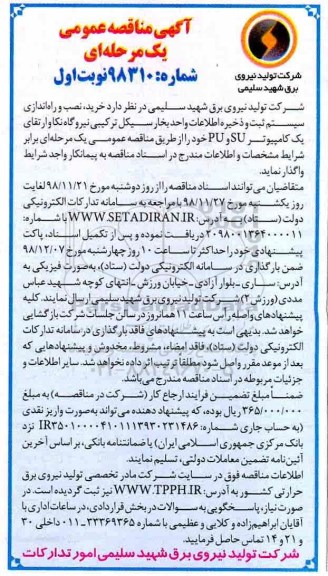 آگهی مناقصه عمومی
یک مرحله‌ای
شماره: ۹۸۳۱۰ نوبت اول
شرکت تولید نیروی
برق شهید سلیمی
شرکت تولید نیروی برق شهید سلیمی در نظر دارد خرید، نصب و راه‌اندازی
سیستم ثبت و ذخیره اطلاعات واحد بخار سیکل ترکیبی نیروگاه نکا و ارتقای
یک کامپیوتر SU و PU خود را از طریق مناقصه عمومی یک مرحله‌ای برابر
شرایط مشخصات و اطلاعات مندرج در اسناد مناقصه به پیمانکار واجد شرایط
واگذار نماید.
متقاضیان می‌توانند اسناد مناقصه را از روز دوشنبه مورخ ۹۸/۱۱/۲۱ لغایت
روز یکشنبه مورخ ۹۸/۱۱/۲۷ با مراجعه به سامانه تدارکات الکترونیکی
دولت (ستاد) به آدرس: WWW.SETADIRAN.IR با شماره:
۲۰۹۸۰۰۱۳۶۴۰۰۰۰۱۱ دریافت نموده و پس از تکمیل اسناد، پاکت
پیشنهادی خود را حداکثر تا ساعت ۱۰ روز چهارشنبه مورخ ۹۸/۱۲/۰۷
ضمن بارگذاری در سامانه الکترونیکی دولت (ستاد)، به‌صورت فیزیکی به
آدرس: ساری - بلوار آزادی - خیابان ورزش - انتهای کوچه شهید عباس
مددی (ورزش ۲) شرکت تولید نیروی برق شهید سلیمی ارسال نمایند. کلیه
پیشنهادهای واصله رأس ساعت ۱۱ همان روز در سالن جلسات شرکت بازگشایی
خواهد شد. بدیهی است به پیشنهادهای فاقد بارگذاری در سامانه تدارکات
الکترونیکی دولت (ستاد)، فاقد امضاء، مشروط، مخدوش و پیشنهادهایی که
بعد از موعد مقرر واصل شود مطلقا ترتیب اثر داده نخواهد شد. سایر اطلاعات و
جزئیات مربوطه در اسناد مناقصه مندرج می‌باشد.
ضمناً مبلغ تضمین فرایند ارجاع کار (شرکت در مناقصه) به مبلغ
۳۶۵/۰۰۰/۰۰۰ ریال بوده، که پیشنهاد دهنده می تواند به‌صورت واریز نقدی
(به حساب جاری شماره: IR۳۵۰۱۰۰۰۰۴۱۰۱۱۱۳۹۲۰۲۳۱۴۸۶ نزد
بانک مرکزی جمهوری اسلامی ایران) یا ضمانتنامه بانکی، بر اساس آخرین
آئین‌نامه تضمین معاملات دولتی، تسلیم نمایند.
اطلاعات مناقصه فوق در سایت شرکت مادر تخصصی تولید نیروی برق
حرارتی کشور به آدرس: WWW.TPPH.IR نیز ثبت گردیده است. در
صورت نیاز، پاسخگویی به سوالات در بخش قراردادی، در ساعات اداری با
آقایان ابراهیم‌زاده و کلایی و عظیمی با شماره ۳۳۳۶۹۳۶۵-۰۱۱ داخلی ۳۰
و ۲۱ و ۱۴ تماس حاصل فرمایید.
شرکت تولید نیروی برق شهید سلیمی امور تدارکات